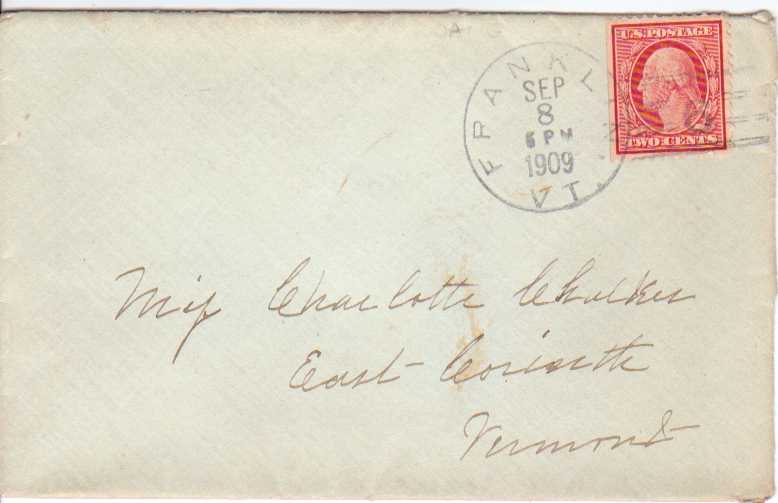 FRANKL
SEP
8
6 PM
1909
VT.
U.S. POSTAGE
TWO CENTS
Miss Charlotte Chalker
East Corinth
Vermont